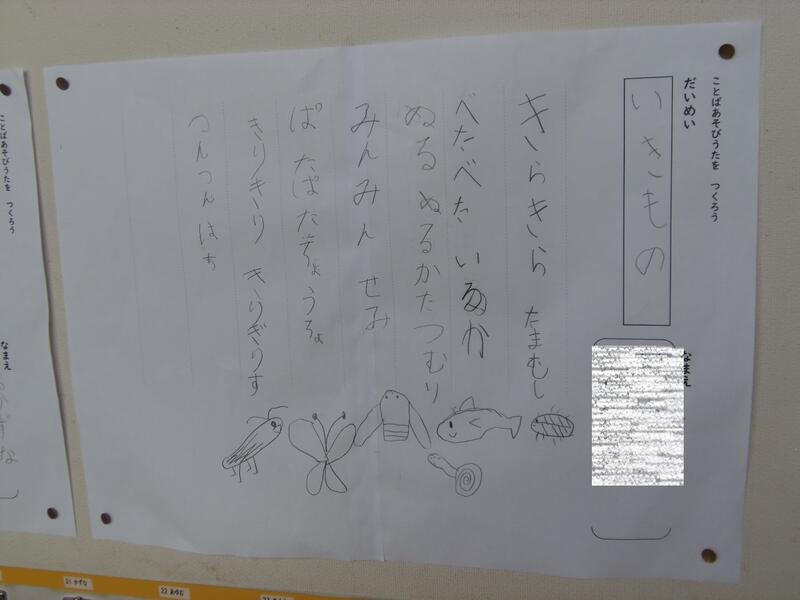 ことばあそびうたを つくろう
だいめい
いきもの
なまえ
きらきら たまむし
べたべた いるか
ぬるぬるかたつむり
みんみん せみ
ぱたぱたちょうちょ
きりきり きりぎりす
つんつん はち
ことばあそびうたを つくろう
なまえ
21 かずな